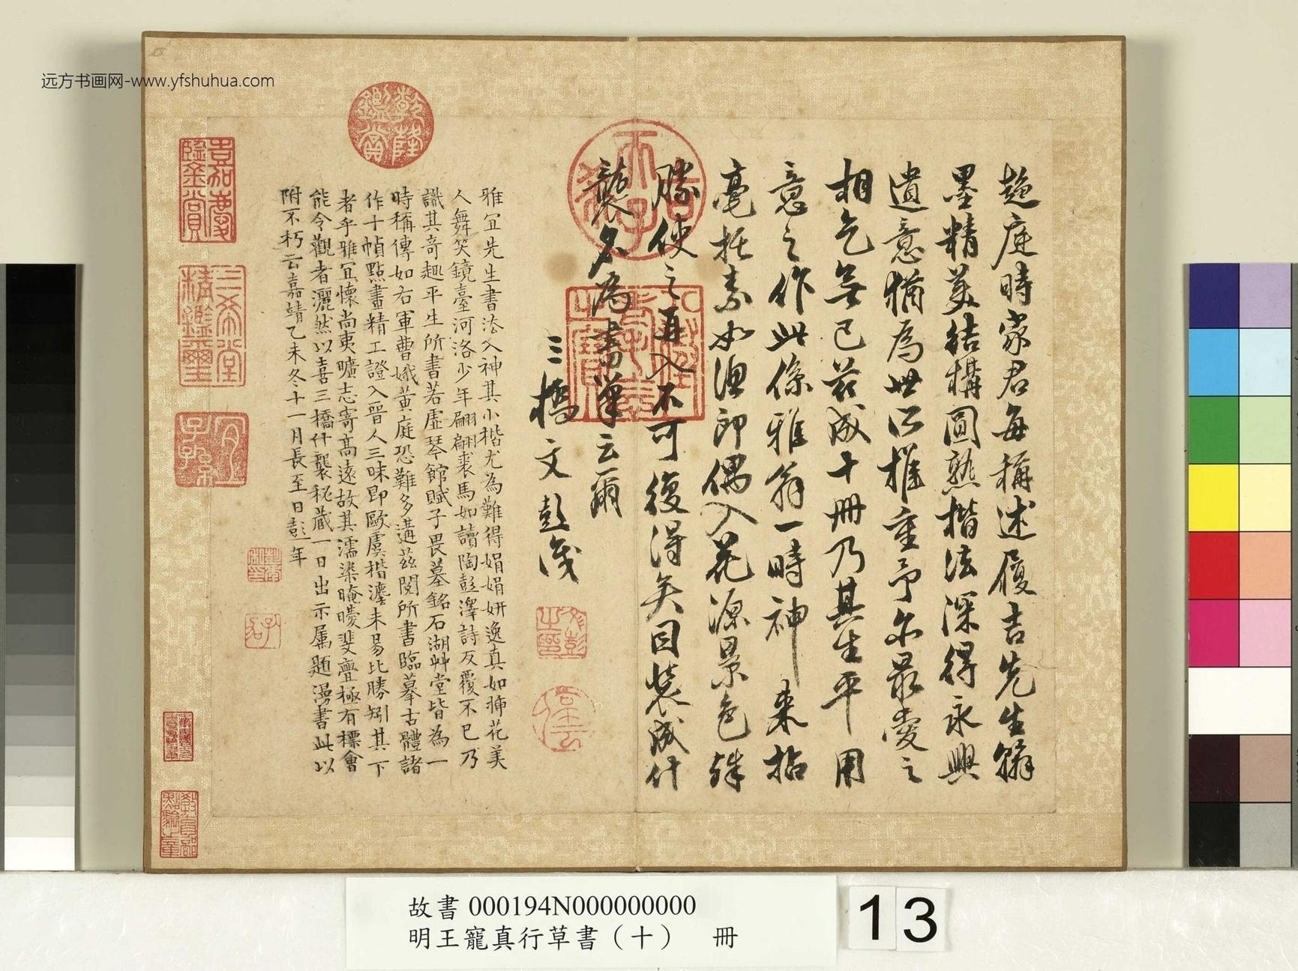 远方书画网-www.yfshuhua.com
趨庭時家君每稱述履吉先生翰
墨精美結構圓熟楷法深得永興
遺意猶為世所推重予尓最愛之
相乞無已茲成十冊乃其生平用
意之作此係雅翁一時神來拈
毫抒素如漁郎偶入花源景色殊
勝使之再入不可復得矣因裝成什
襲名為書巢云爾
三橋文彭識
雅宜先生書法入神其小楷尤為難得娟娟妍逸真如插花美
人舞笑鏡臺河洛少年翩翩裘馬如讀陶彭澤詩反覆不已乃
識其奇趣平生所書若虛琴館賦子畏墓銘石湖艸堂皆為一
時稱傳如右軍曹娥黃庭恐難多遘茲閱所書臨摹古體諸
作十幀點畫精工證入晉人三昧即歐虞楷灋未易比勝矧其下
者乎雅宜懷尚夷曠志寄高遠故其濡染晻曖斐亹極有標會
能令觀者灑然以喜三橋什襲秘藏一日出示屬題漫書此以
附不朽云嘉靖乙未冬十一月長至日彭年
乾隆鑑賞
嘉慶鑒賞
三希堂精鑑璽
宜子孫
文彭之印
故書 000194N000000000
明王寵真行草書（十） 冊
13